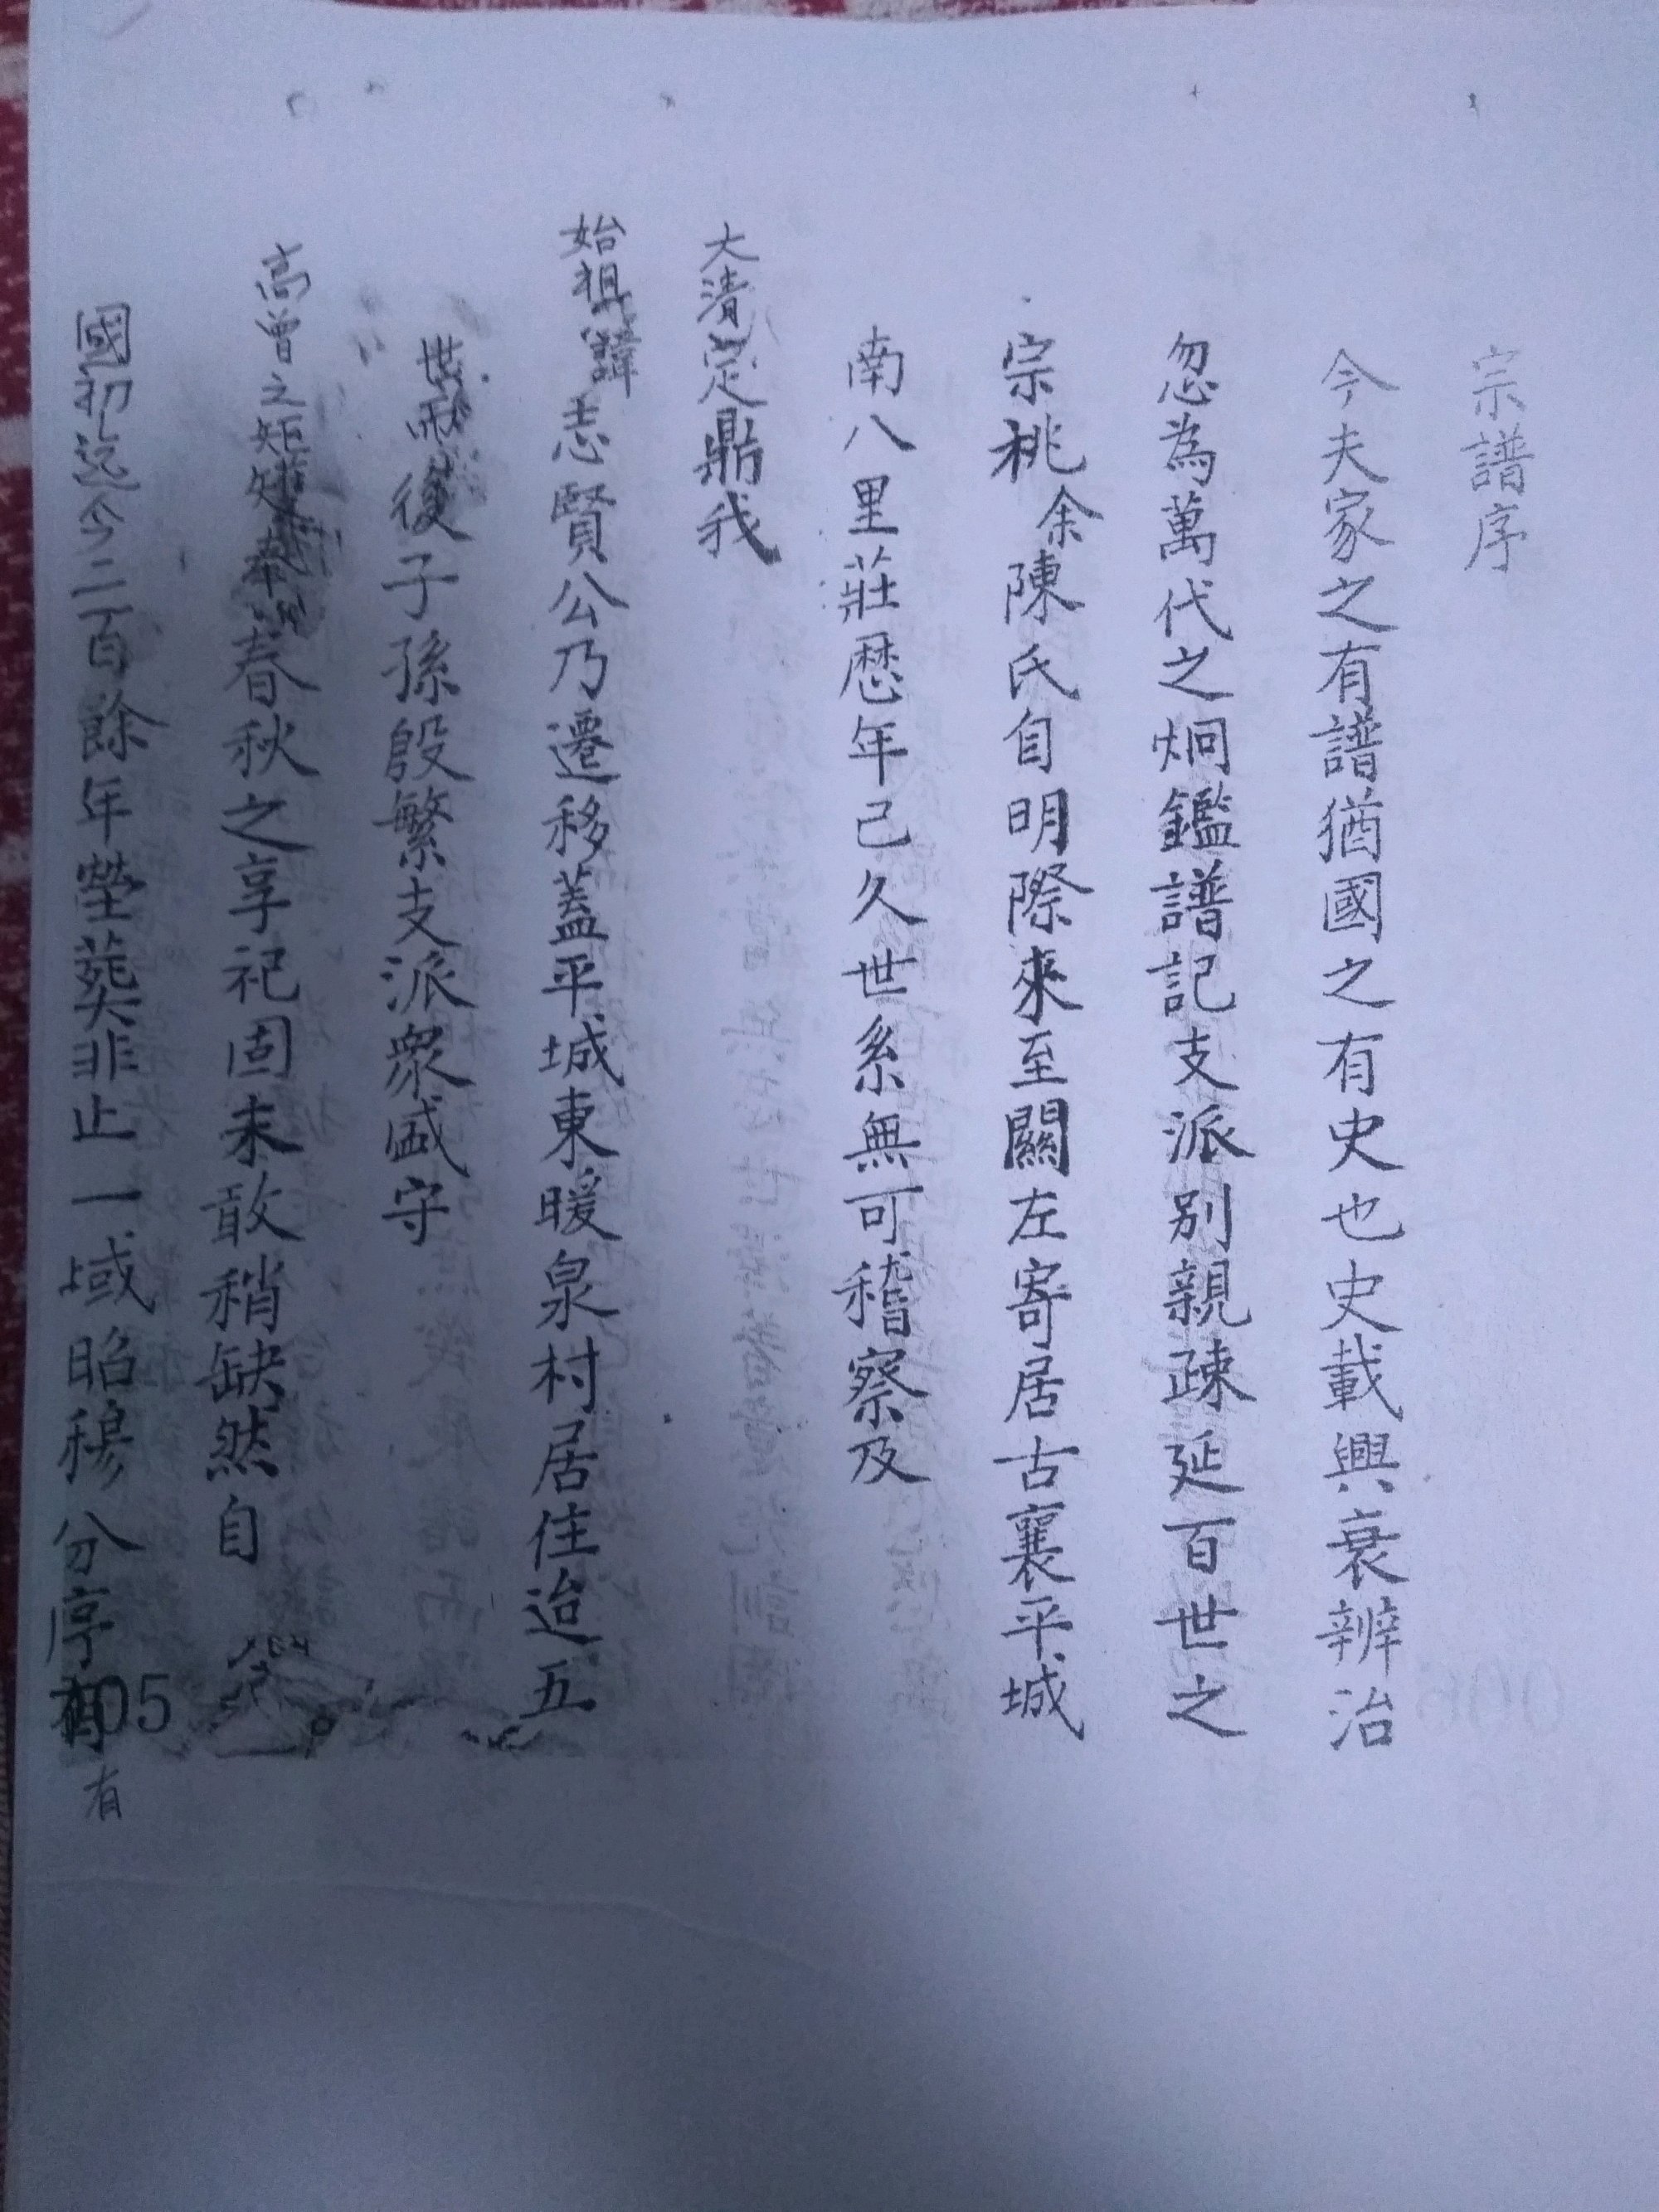 宗譜序
今夫家之有譜猶國之有史也史載興衰辨治
忽為萬代之炯鑑譜記支派別親疎延百世之
宗桃余陳氏自明際來至關左寄居古襄平城
南八里莊歷年己久世系無可稽察及
大清定鼎我
始祖諱志賢公乃遷移蓋平城東暖泉村居住迨五
世後子孫殷繁支派眾盛守
高曾之矩奉春秋之享祀固未敢稍缺然自
國初迄今二百餘年塋葬非止一域昭穆分序有
005